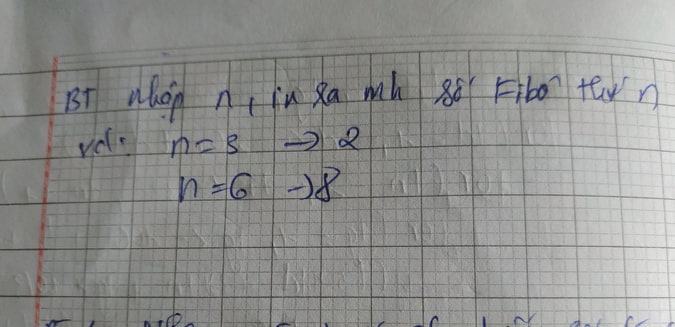 BT nhập n, in ra mh số Fibô thứ n
vd: n=3 → 2
n=6 → 8